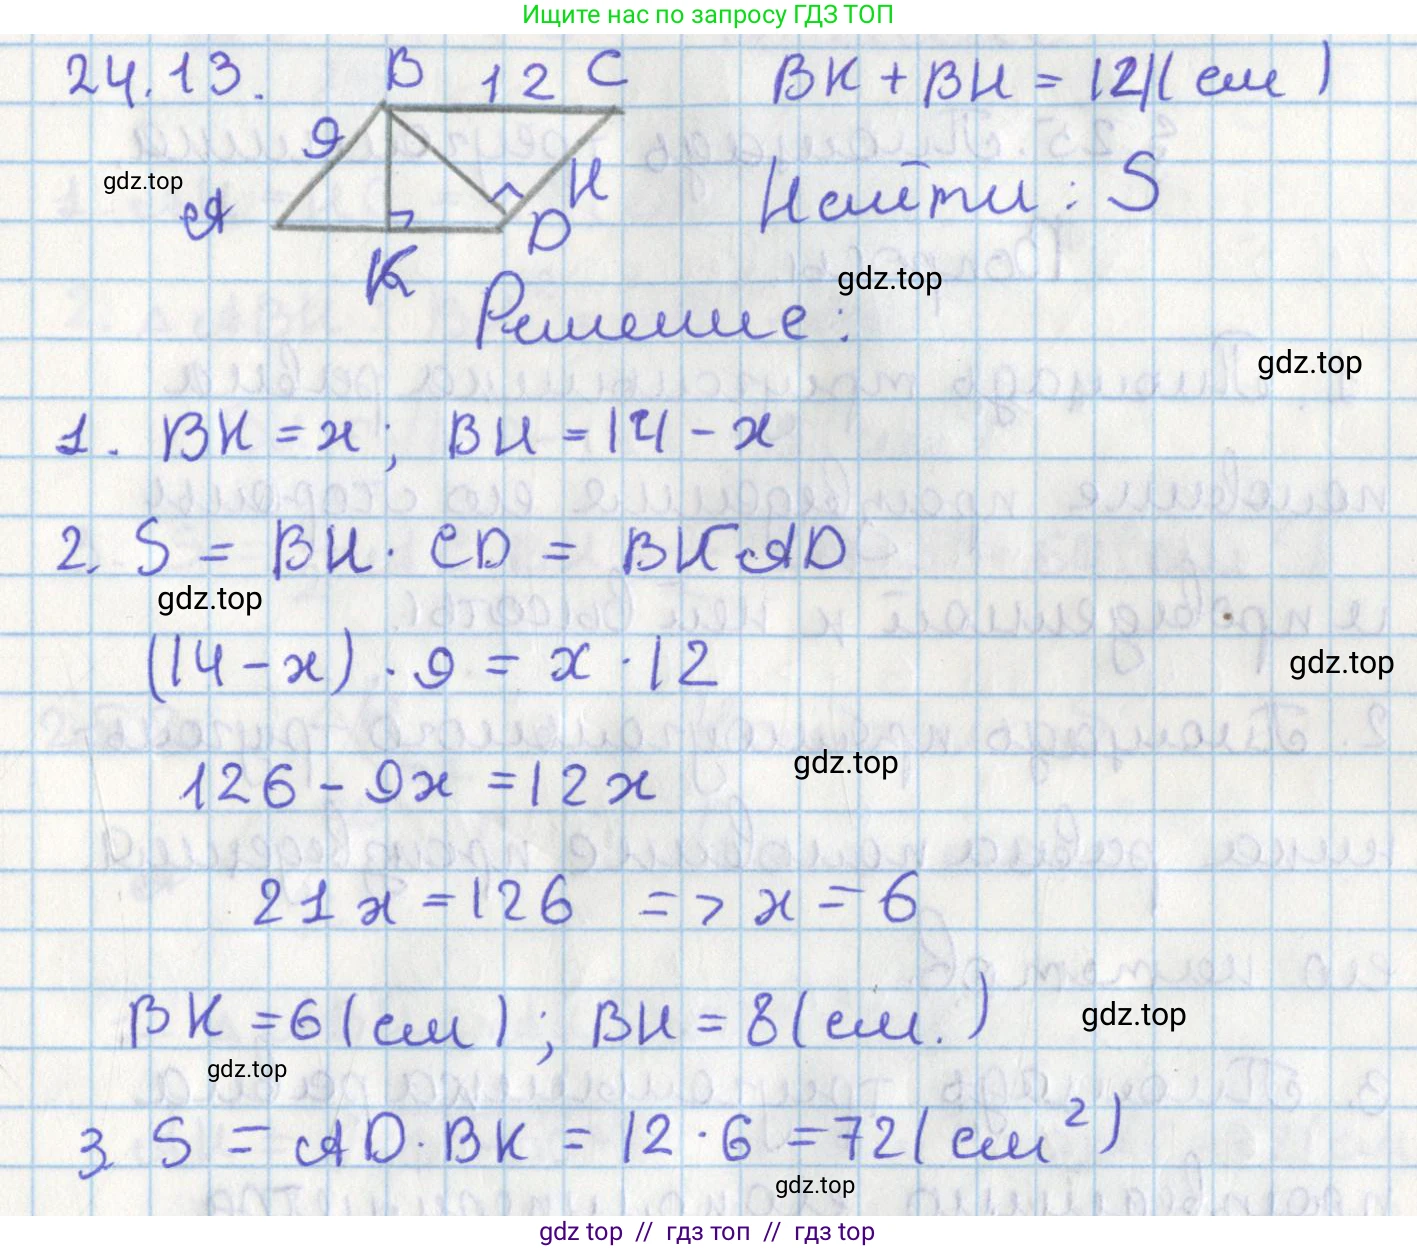 Ищите нас по запросу ГДЗ ТОП
24.13.
B 12 C
9
A
H
D
K
BK + BH = 12 (см)
Найти: S
gdz.top
gdz.top
Решение:
gdz.top
1. BK = x; BH = 14 - x
2. S = BH · CD = BK · AD
gdz.top
(14 - x) · 9 = x · 12
gdz.top
126 - 9x = 12x
gdz.top
21x = 126 => x = 6
BK = 6 (см); BH = 8 (см.)
gdz.top
gdz.top
3. S = AD · BK = 12 · 6 = 72 (см²)
gdz.top
gdz top // гдз топ // гдз top